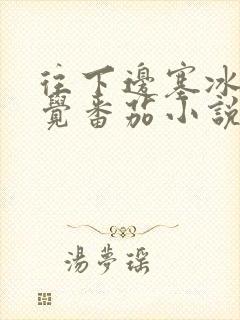 往下邊塞冰
覺番茄小說
湯夢瑶